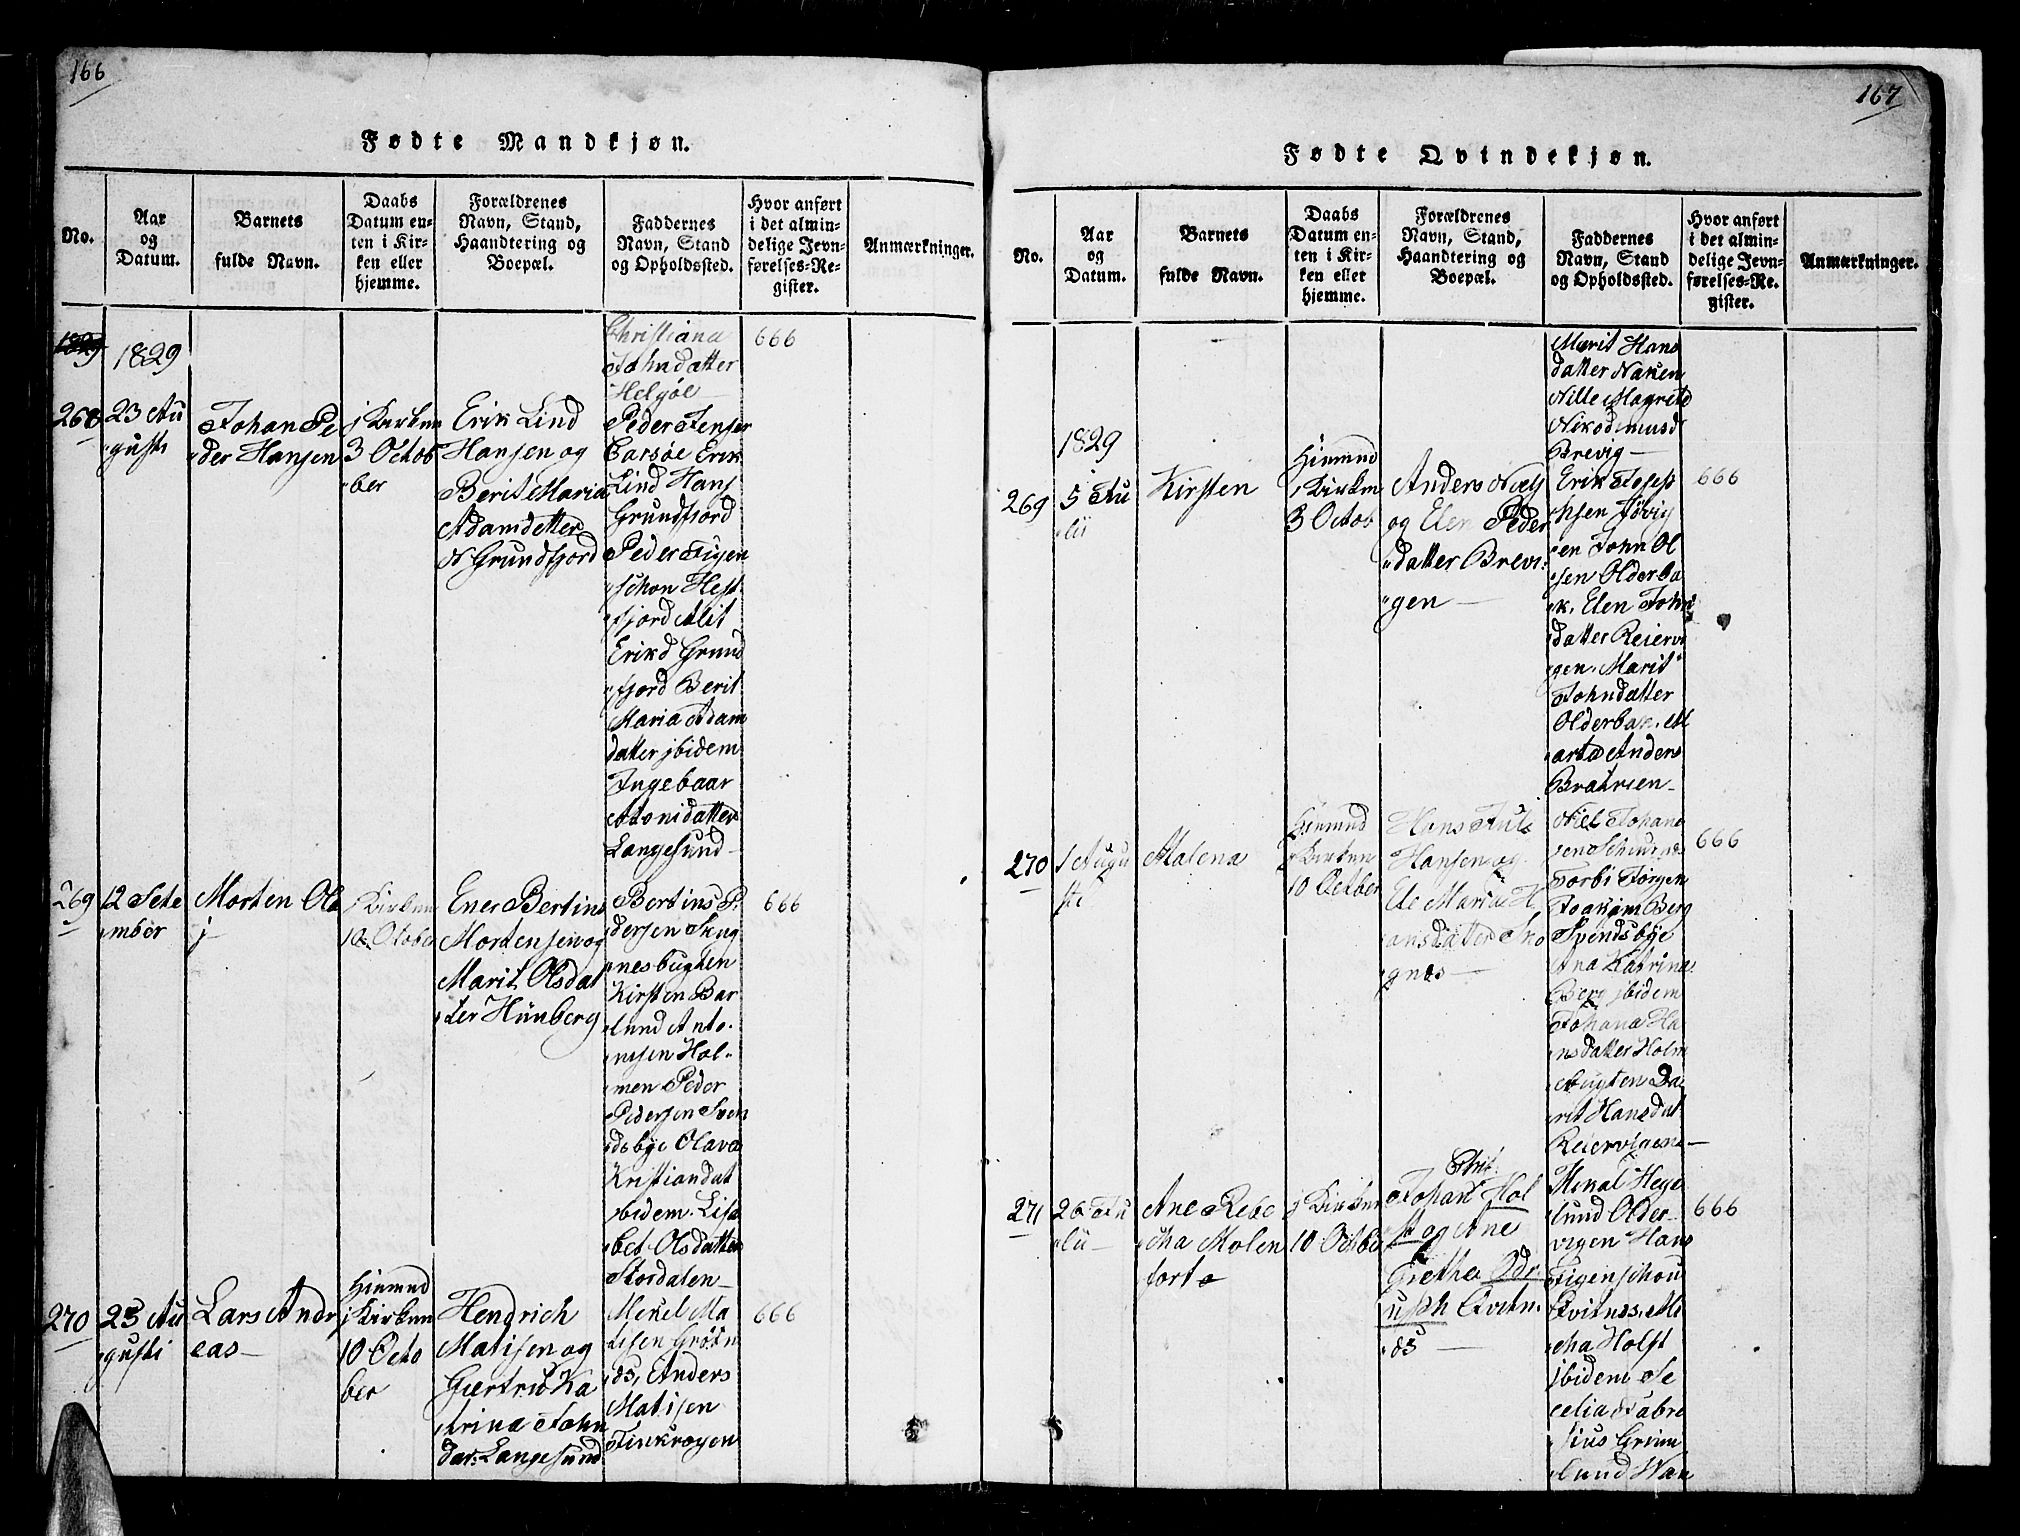 166
Fødte Mandkjøn.
No.
Aar
og
Datum.
Barnets
fulde Navn.
Daabs
Datum en-
ten i Kir-
ken eller
hjemme.
Forældrenes
Navn, Stand,
Haandtering og
Boepæl.
Faddernes
Navn, Stand
og Opholdssted.
Hvor anført
i det almin-
delige Jevn-
førelses-Re-
gister.
Anmærkninger.
1829
1829
Christiana
Johndatter
Helgøe
666
268
23 Au
gusti
Johan Pe
der Hansen
j Kirken
3 Octob
ber
Erik Lind
Hansen og
Berit Maria
Adamdatter
N Grundfjord
Peder Jenser
Carsøe Erik
Lind Hans
Grundfjord
Peder Figen
schou Hest
fjord Alit
Erikd Grund
fjord Berit
Maria Adam
datter jbidem
Ingebaar
Antonidatter
Langesund
269
12 Sete
mber
Morten Ola
j
j Kirken
10 October
Ener Bertins
Mortensen og
Marit Olsdat
ter Hünberg
Bertins P.
dersen Snug
nesbugten
Kirsten Bar
lund Anto
nisen Hol-
men Peder
Pedersen Sven
dsbye Olava
Kristiandat
jbidem. Lisa
bet Olsdatter
Stordalen
666
270
23 Au
gusti
Lars Andr
eas
Hiemmd
j Kirken
10 Octo
ber
Hendrich
Matisen og
Giertru Ka
trina John
dat: Langesund
Mekel Ma
tisen Grøtn
æs, Anders
Matisen
Finkrogen
666
167
Fødte Qvindekjøn.
No.
Aar
og
Datum.
Barnets
fulde Navn.
Daabs
Datum en-
ten i Kir-
ken eller
hjemme.
Forældrenes
Navn, Stand,
Haandtering og
Boepæl.
Faddernes
Navn, Stand
og Opholdssted.
Hvor anført
i det almin-
delige Jevn-
førelses-Re-
gister.
Anmærkninger.
Marit Hans
datter Naken
Nille Magreta
Nikodemusd
Brevig
1829
269
5 Ju
lii
Kirsten
Hiemmd
j Kirkm
3 Octob
Anders Niels
og Elen Peder
datter Brevi
gen
Erik Josep
hsen Jøvig
en John Ol
sen Olderba
k. Elen John
datter Reiervi
gen. Marit
Johndatter
Olderbak. M
arta Anders
Bratrien
666
270
1 Augu
sti
Malena
Hiemmd
j Kirken
10 October
Hans Juls
Hansen og
Ele Maria H
ansdatter Sno
gnæs
Niel Johane
sen
Torbi Jørgen
Joakim Berg
Spendsbye
Ana Katrina
Berg jbidem
Johana Ha
nsdatter Holm
ebugten Da
rit Hansdat
Reiervigene
666
271
26 Ju
lii
Ane Rebe
cha Molen
forte
j Kirken
10 Octbe
Chrit.
Johan Hol
st og Ane
Grethe Odr
usch Qvitn
æs
Mekal Heye
lund Older-
vigen Hans
Figenschou
Qvitnes. Mi
cha Holst
jbidem Se
celia Fabre
sius Grim
lund Wan
666